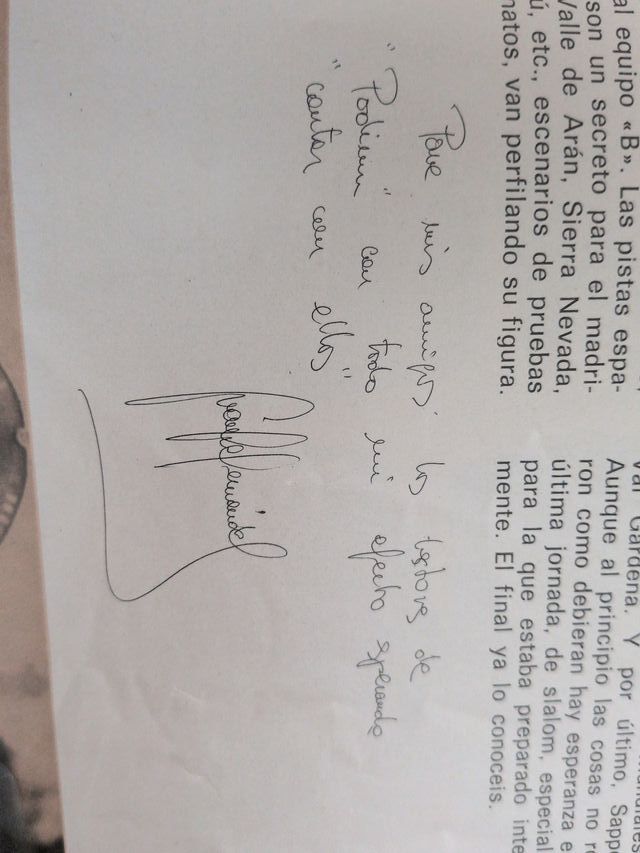 al equipo «B». Las pistas espa-
son un secreto para el madri-
Valle de Arán, Sierra Nevada,
ú, etc., escenarios de pruebas
natos, van perfilando su figura.
Gardena. Y por último, Sapp
Aunque al principio las cosas no r
ron como debieran hay esperanza e
última jornada, de slalom, especial
para la que estaba preparado inte
mente. El final ya lo conoceis.
Para mis amigos los lectores de
"Podium" con todo mi afecto esperando
"contar con ellos"